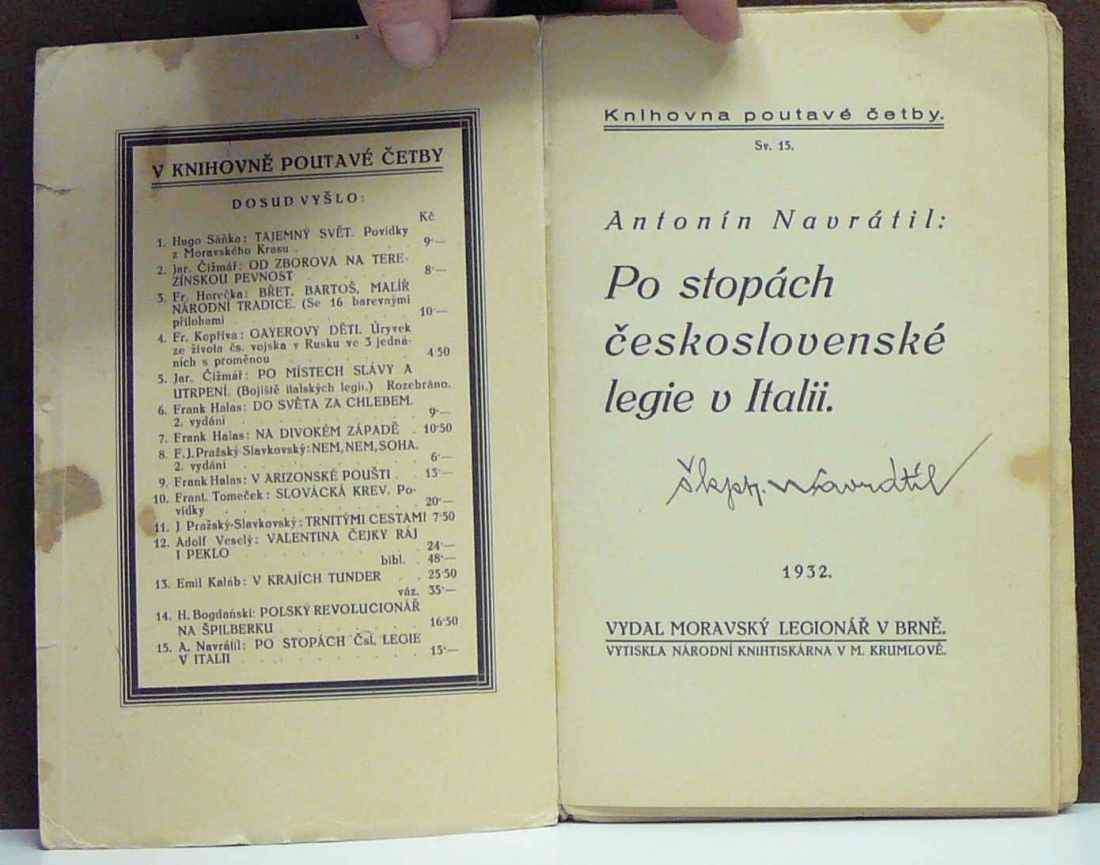 V KNIHOVNĚ POUTAVÉ ČETBY
DOSUD VYŠLO:
Kč
1. Hugo Sáňka: TAJEMNÝ SVĚT. Povídky
z Moravského Krasu . 9·—
2. Jar. Čižmář: OD ZBOROVA NA TERE-
ZÍNSKOU PEVNOST 8·—
3. Fr. Horečka: BŘET. BARTOŠ, MALÍŘ
NÁRODNÍ TRADICE. (Se 16 barevnými
přílohami 10·—
4. Fr. Kopřiva: GAYEROVY DĚTI. Úryvek
ze života čs. vojska v Rusku ve 3 jedná-
ních s proměnou 4·50
5. Jar. Čižmář: PO MÍSTECH SLÁVY A
UTRPENÍ. (Bojiště italských legií.) Rozebráno.
6. Frank Halas: DO SVĚTA ZA CHLEBEM.
2. vydání 9·—
7. Frank Halas: NA DIVOKÉM ZÁPADĚ . 10·50
8. F. J. Pražský-Slavkovský: NEM, NEM, SOHA.
2. vydání 6·—
9. Frank Halas: V ARIZONSKÉ POUŠTI . 13·—
10. Frant. Tomeček: SLOVÁCKÁ KREV. Po-
vídky 20·—
11. J Pražský-Slavkovský: TRNITÝMI CESTAMI 7·50
12. Adolf Veselý: VALENTINA ČEJKY RÁJ
I PEKLO 24·—
bibl. . 48·—
13. Emil Kaláb: V KRAJÍCH TUNDER . . 25·50
váz. 35·—
14. H. Bogdański: POLSKÝ REVOLUCIONÁŘ
NA ŠPILBERKU 16·50
15. A. Navrátil: PO STOPÁCH Čsl. LEGIE
V ITALII 15·—
Knihovna poutavé četby.
Sv. 15.
Antonín Navrátil:
Po stopách
československé
legie v Italii.
škpt. Navrátil
1932.
VYDAL MORAVSKÝ LEGIONÁŘ V BRNĚ.
VYTISKLA NÁRODNÍ KNIHTISKÁRNA V M. KRUMLOVĚ.